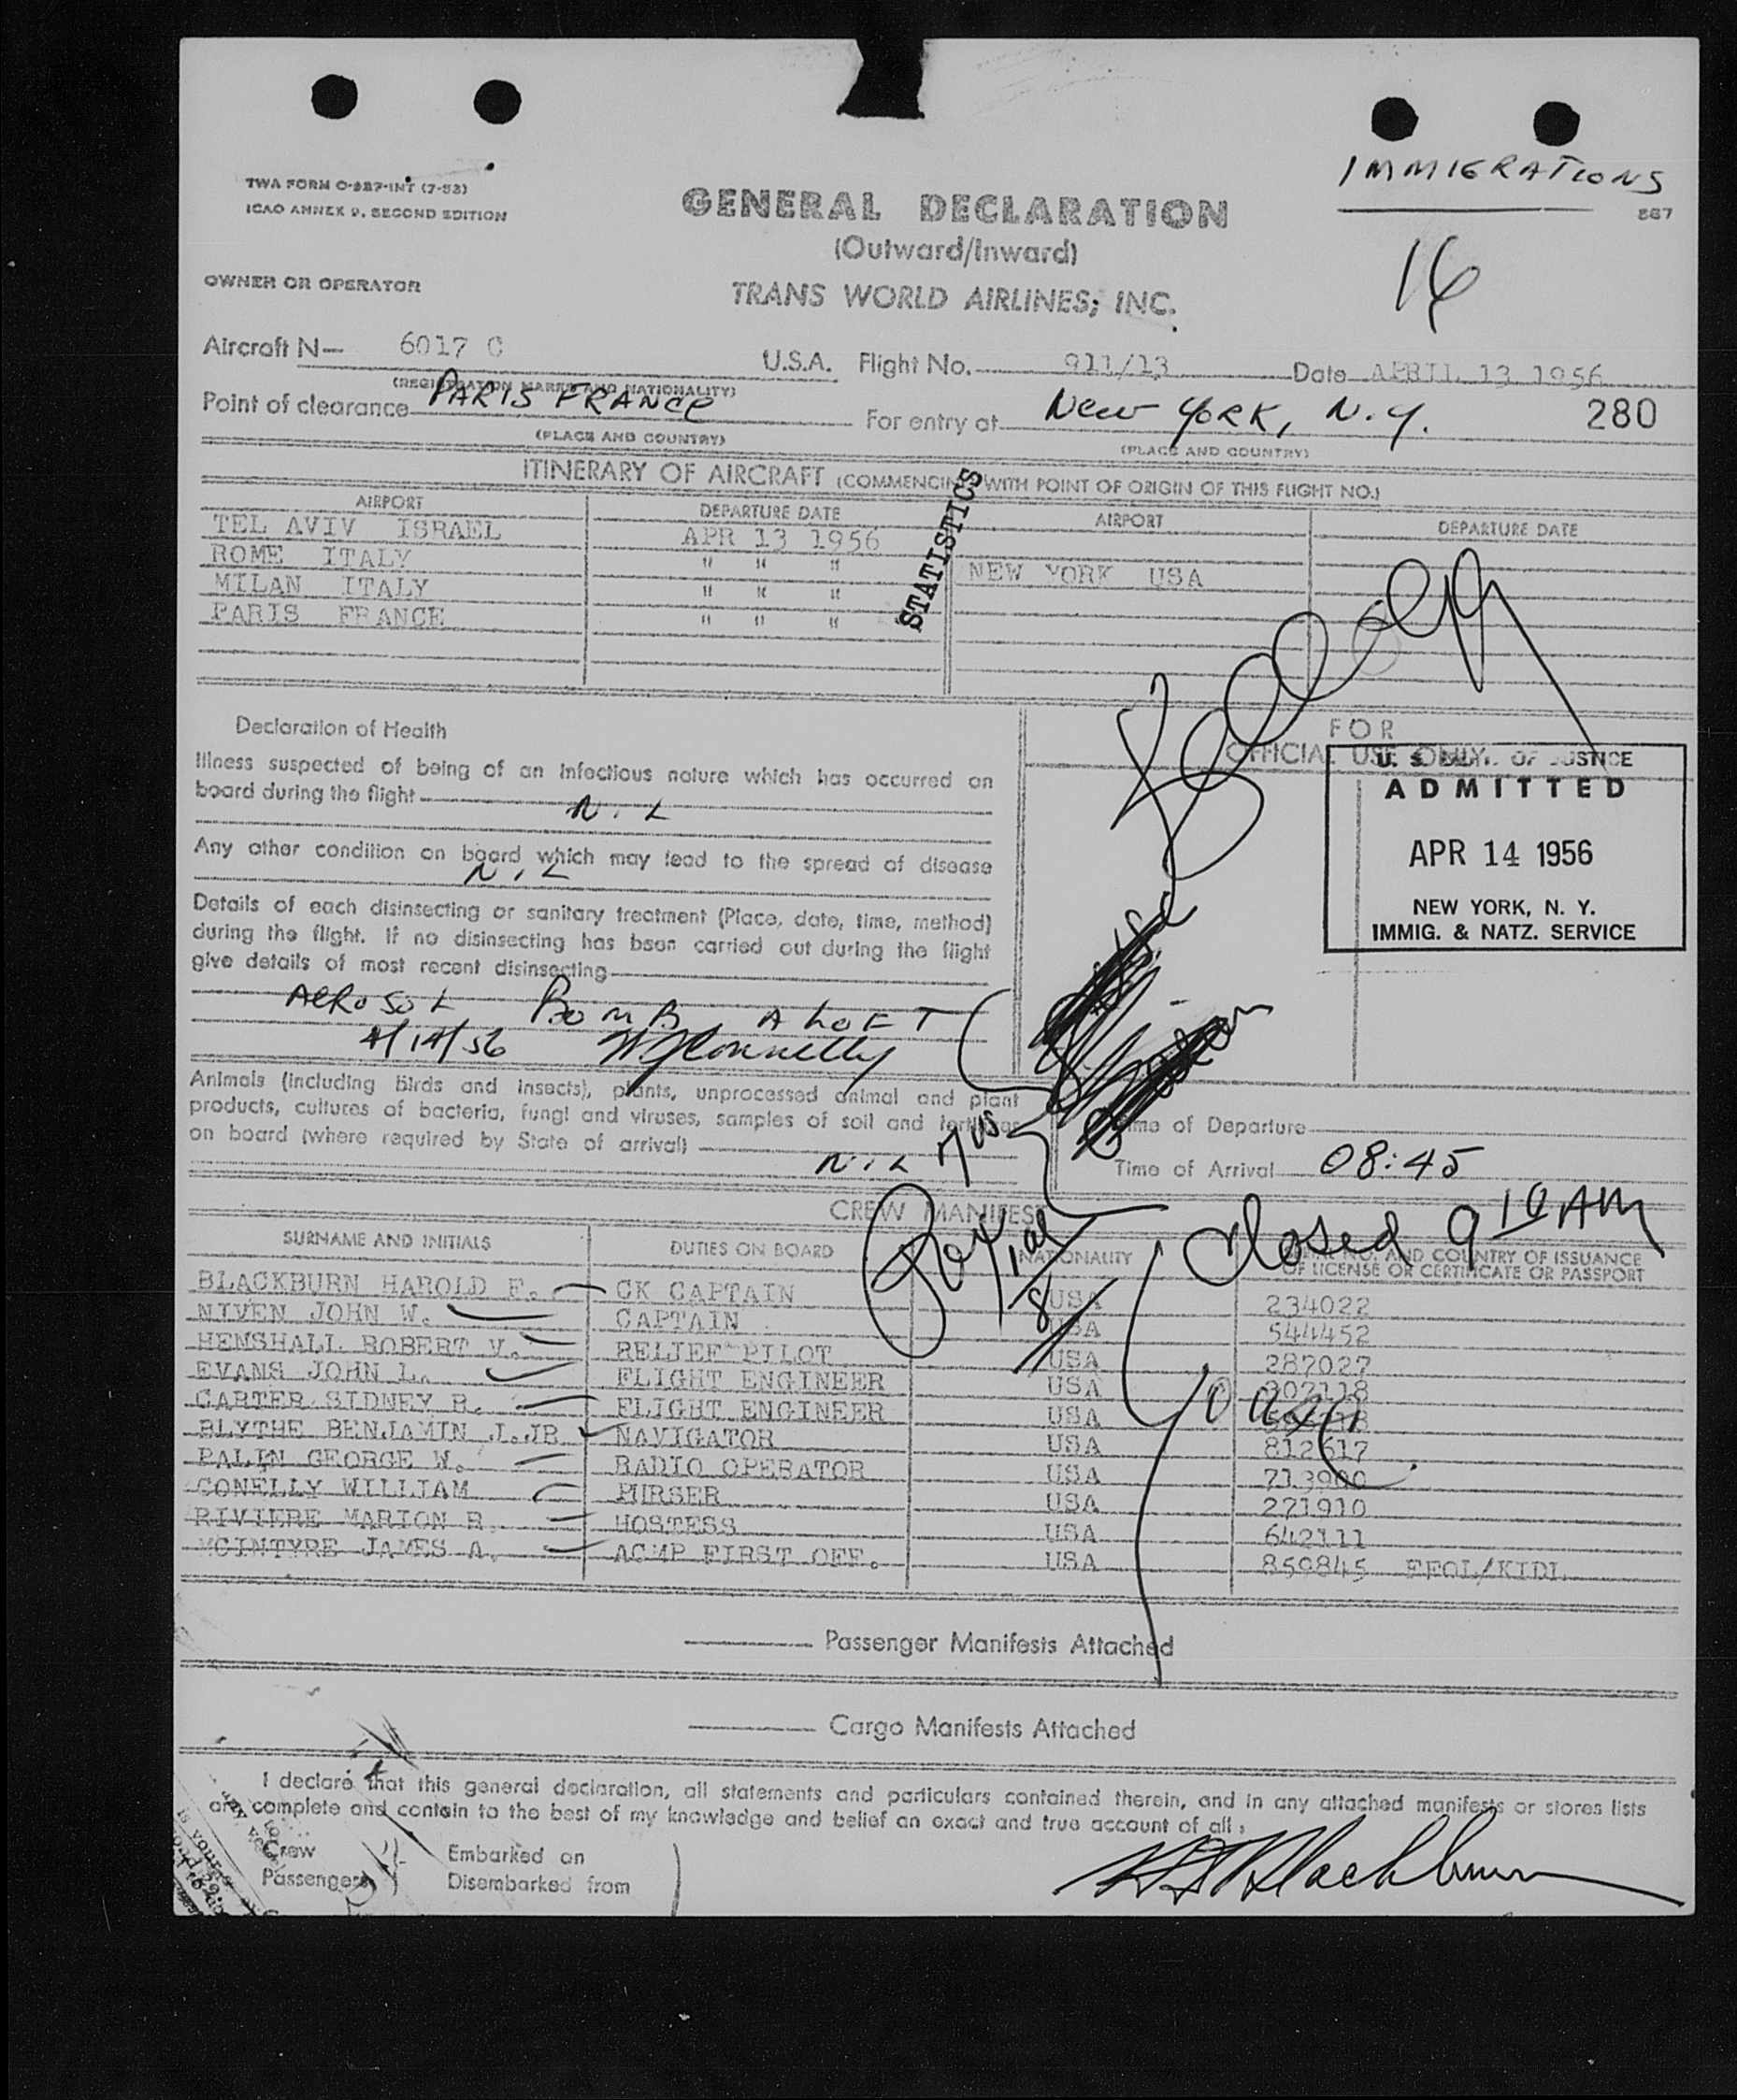 IMMIGRATIONS
TWA FORM O-287-INT (7-53)
ICAO ANNEX 9, SECOND EDITION
GENERAL DECLARATION
567
(Outward/Inward)
16
OWNER OR OPERATOR
TRANS WORLD AIRLINES, INC.
Aircraft N— 6017 C U.S.A. Flight No. 911/13 Date APRIL 13 1956
(REGISTRATION MARKS AND NATIONALITY)
Point of clearance PARIS FRANCE For entry at New York, N.Y. 280
(PLACE AND COUNTRY) (PLACE AND COUNTRY)
ITINERARY OF AIRCRAFT (COMMENCING WITH POINT OF ORIGIN OF THIS FLIGHT NO.)
AIRPORT DEPARTURE DATE AIRPORT DEPARTURE DATE
TEL AVIV ISRAEL APR 13 1956
ROME ITALY " " " NEW YORK USA
MILAN ITALY " " "
PARIS FRANCE " " "
STATISTICS
Declaration of Health
Illness suspected of being of an infectious nature which has occurred on
board during the flight
NIL
Any other condition on board which may lead to the spread of disease
NIL
Details of each disinsecting or sanitary treatment (Place, date, time, method)
during the flight. If no disinsecting has been carried out during the flight
give details of most recent disinsecting
AEROSOL BOMB ALOFT
4/14/56 WJConnelly
FOR
OFFICIAL USE ONLY
U. S. DEPT. OF JUSTICE
ADMITTED
APR 14 1956
NEW YORK, N. Y.
IMMIG. & NATZ. SERVICE
Animals (including birds and insects), plants, unprocessed animal and plant
products, cultures of bacteria, fungi and viruses, samples of soil and fertilizer
on board (where required by State of arrival)
NIL
Time of Departure
Time of Arrival 08:45
Closed 9 10 AM
CREW MANIFEST
SURNAME AND INITIALS DUTIES ON BOARD NATIONALITY SERIAL NO. AND COUNTRY OF ISSUANCE
OF LICENSE OR CERTIFICATE OR PASSPORT
BLACKBURN HAROLD F. CK CAPTAIN USA 234022
NIVEN JOHN W. CAPTAIN USA 544452
HENSHALL ROBERT V. RELIEF PILOT USA 287027
EVANS JOHN L. FLIGHT ENGINEER USA
CARTER SIDNEY R. FLIGHT ENGINEER USA
BLYTHE BENJAMIN J. JR NAVIGATOR USA 812617
PALIN GEORGE W. RADIO OPERATOR USA 713900
CONELLY WILLIAM PURSER USA 271910
RIVIERE MARION R. HOSTESS USA 642111
MCINTYRE JAMES A. ACMP FIRST OFF. USA 859845 FFOL/KIDL
Passenger Manifests Attached
Cargo Manifests Attached
I declare that this general declaration, all statements and particulars contained therein, and in any attached manifests or stores lists
are complete and contain to the best of my knowledge and belief an exact and true account of all:
Crew
Passengers
Embarked on
Disembarked from
HF Blackburn